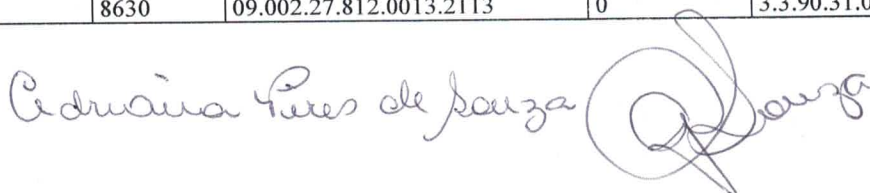 8630 09.002.27.812.0013.2113 0 3.3.90.31.0
Adriana Peres de Souza Souza